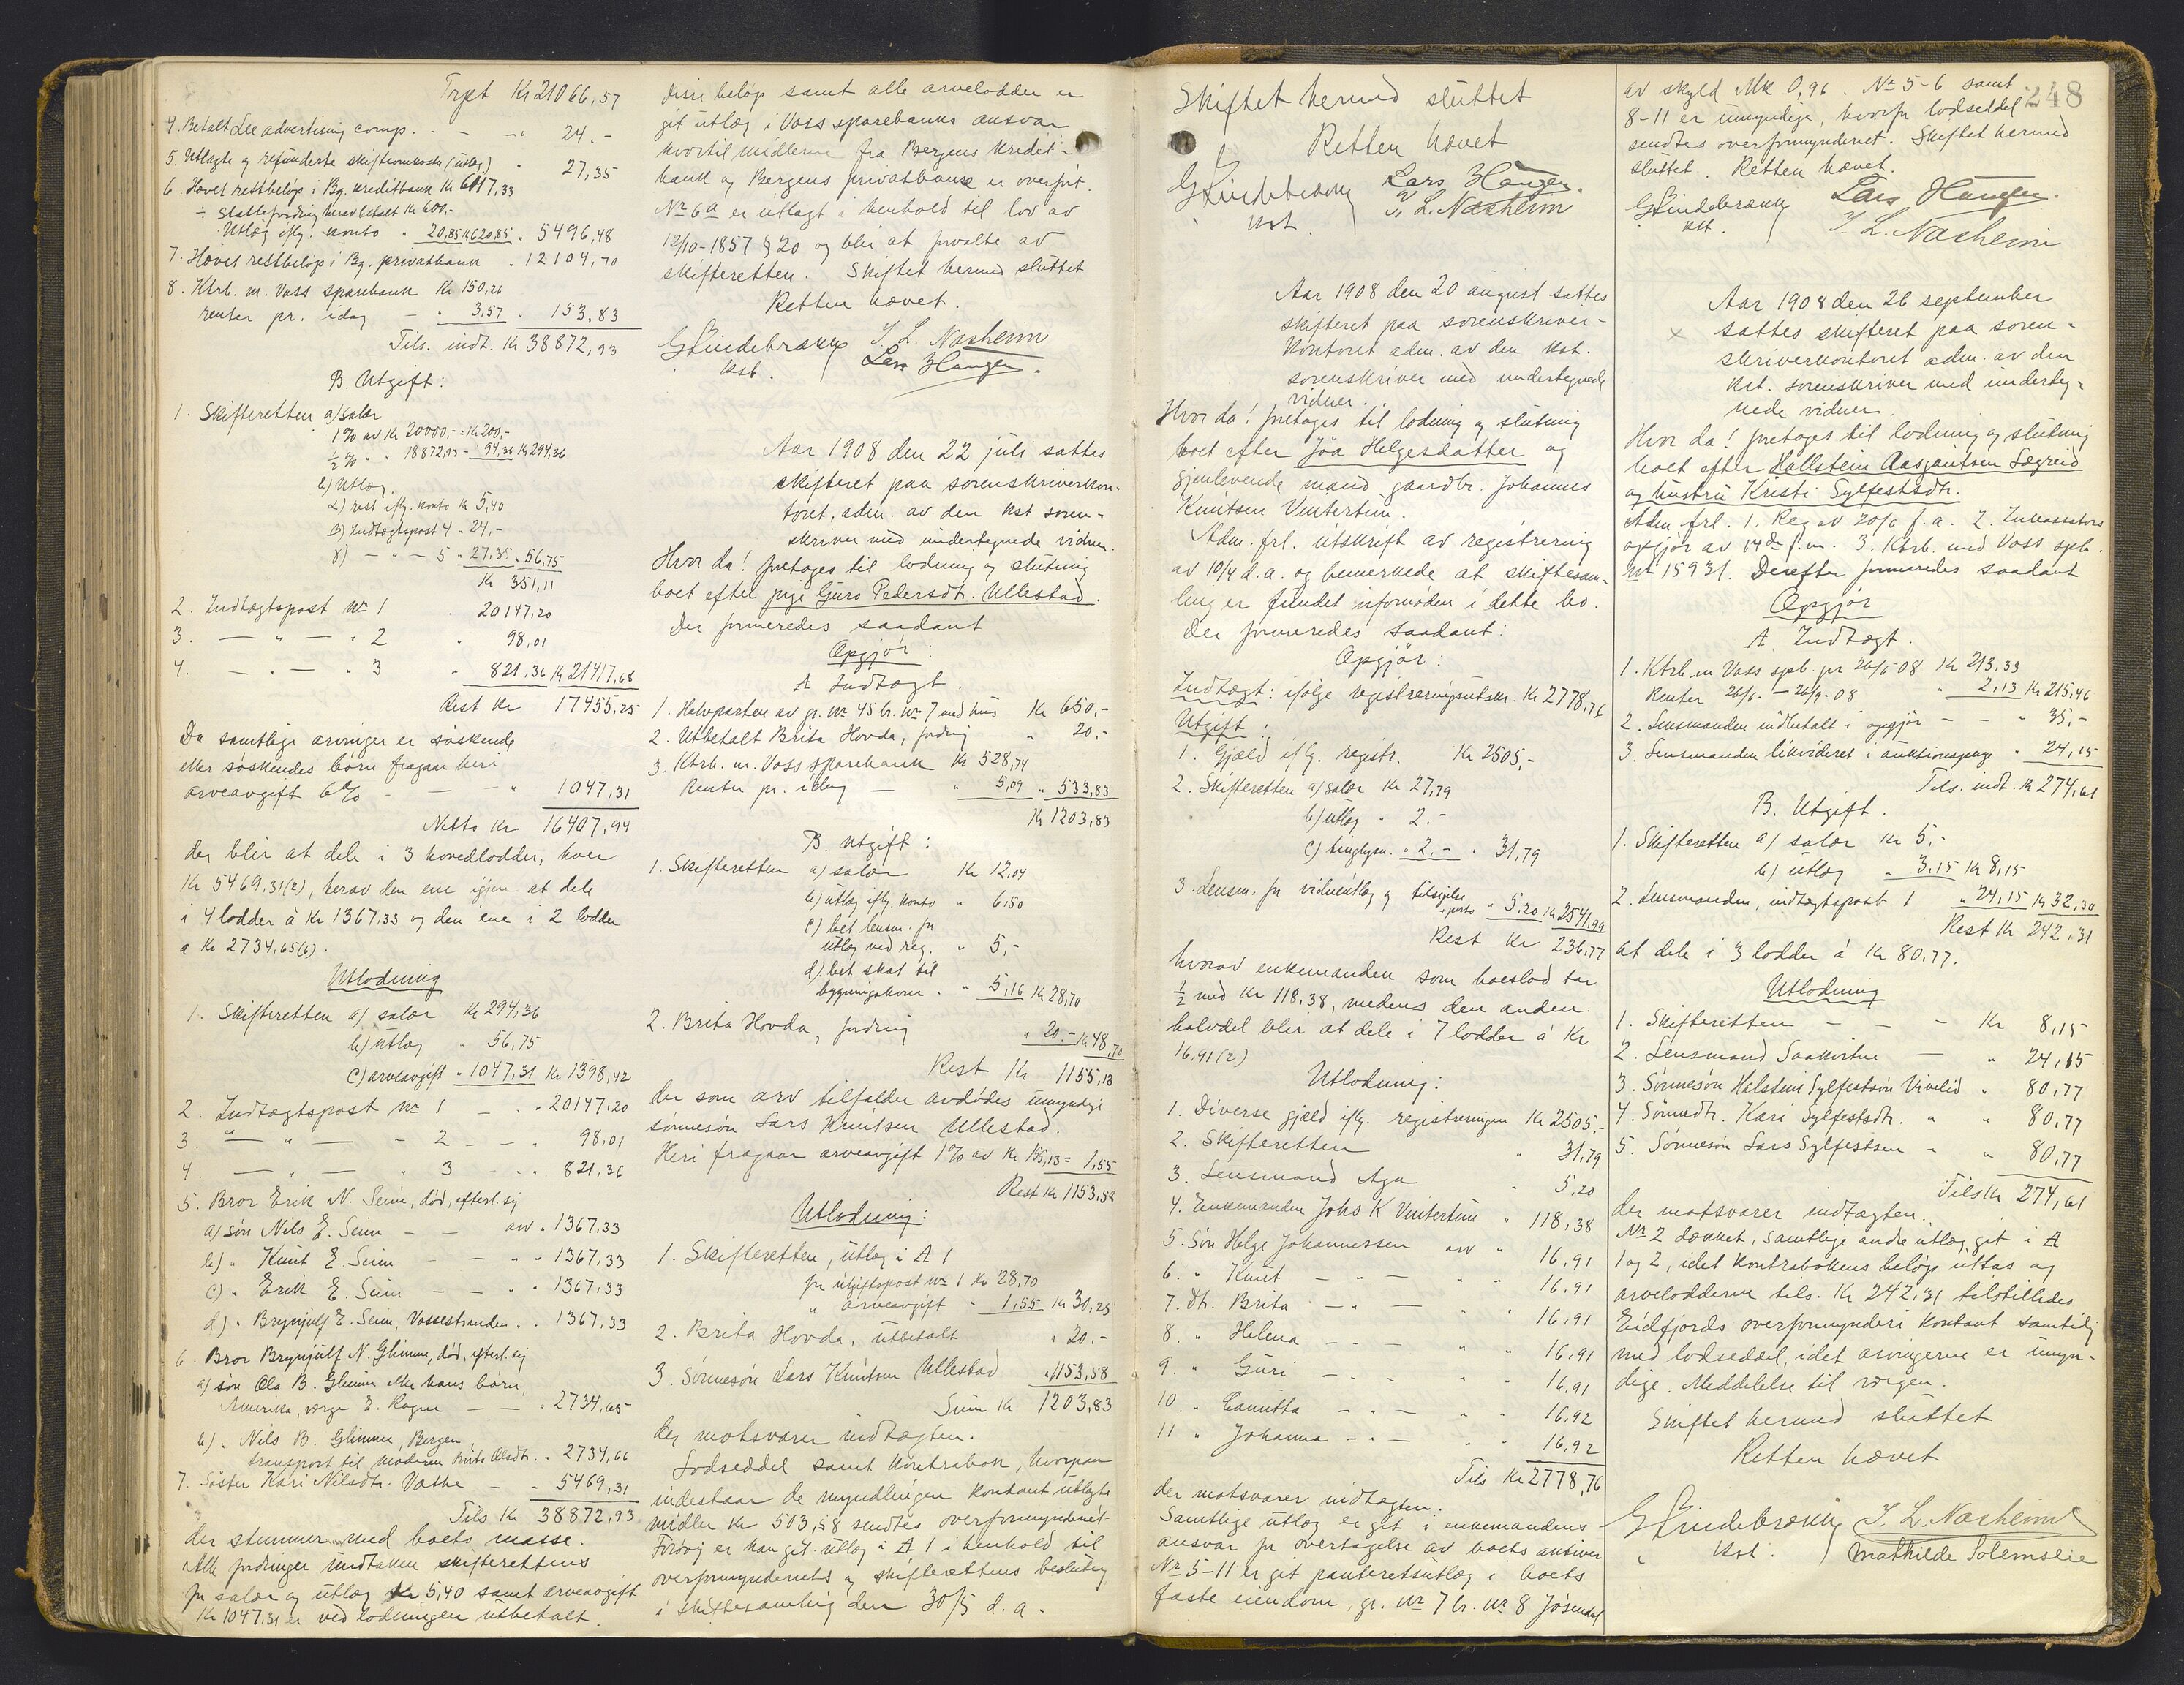 Trpt Kr 21066,57
4. Betalt Lee advertising comp. - - " 24.-
5. Utlagte og refunderte skifteomkostn. (utlæg) " 27,35
6. Hævet restbeløp i Bg. kreditbank Kr 6117,33
÷ Skattefordring herav betalt Kr 600,-
Utlæg iflg. konto " 20,85 Kr 620,85 " 5496,48
7. Hævet restbeløp i Bg. privatbank " 12104,70
8. Ktrb. m. Voss sparebank Kr 150,26
renter pr. idag - " 3,57 " 153,83
Tils. indt. Kr 38872,93
B. Utgift:
1. Skifteretten a) salær
1 % av Kr 20000,- = Kr 200,-
½ % " " 18872,93 - 94,36 Kr 294,36
b) Utlæg
α) rest iflg. konto Kr 5,40
β) Indtægtspost 4 " 24,-
γ) - " - 5 " 27,35 " 56,75
Kr 351,11
2. Indtægtspost No 1 " 20147,20
3. - " - " 2 " 98,01
4. - " - " 3 " 821,36 Kr 21417,68
Rest Kr 17455,25
Da samtlige arvinger er søskende
eller søskendes børn fragaar heri
arveavgift 6 % - - - " 1047,31
Netto Kr 16407,94
der blir at dele i 3 hovedlodder, hver
Kr 5469,31(2), herav den ene igjen at dele
i 4 lodder à Kr 1367,33 og den ene i 2 lodder
a Kr 2734,65(6).
Utlodning
1. Skifteretten a) salær Kr 294,36
b) utlæg " 56,75
c) arveavgift " 1047,31 Kr 1398,42
2. Indtægtspost No 1 - " 20147,20
3. - " - " 2 - - " 98,01
4. - " - " 3 - " 821,36
5. Bror Erik N. Seim, død, efterl. sig
a) søn Nils E. Seim - - arv " 1367,33
b) " Knut E. Seim - - " " 1367,33
c) " Erik E. Seim - - " " 1367,33
d) " Brynjulf E. Seim, Vossestranden " " 1367,33
6. Bror Brynjulf N. Glimme, død, efterl. sig
a) søn Ola B. Glimme eller hans børn,
Amerika, værge E. Rogne - - " 2734,65
b) " Nils B. Glimme, Bergen
transport til moderen Brita Olsdtr. " 2734,66
7. Søster Kari Nilsdtr. Vathe - " 5469,31
Tils. Kr 38872,93
der stemmer med boets masse.
Alle fordringer undtaken skifterettens
for salær og utlæg Kr 5,40 samt arveavgift
Kr 1047,31 er ved lodningen utbetalt.
Disse beløp samt alle arvelodder er
git utlæg i Voss sparebanks ansvar
hvortil midlerne fra Bergens kredit-
bank og Bergens privatbank er overført.
No 6a er utlagt i henhold til lov av
12/10-1857 § 20 og blir at forvalte av
skifteretten. Skiftet hermed sluttet
Retten hævet.
G Lindebrække I. L. Næsheim
kst. Lars Haugen.
Aar 1908 den 22 juli sattes
skifteret paa sorenskriverkon-
toret, adm. av den kst soren-
skriver med undertegnede vidner.
Hvor da! foretoges til lodning og slutning
boet efter pige Guro Pedersdtr. Ullestad.
Der formeredes saadant
Opgjør:
A Indtægt.
1. Halvparten av gr. No 45 br. No 7 med hus Kr 650,-
2. Utbetalt Brita Hovda, fordring " 20.-
3. Ktrb. m. Voss sparebank Kr 528,74
Renter pr. idag - " 5,09 " 533,83
Kr 1203,83
B. Utgift:
1. Skifteretten a) salær Kr 12,04
b) utlæg iflg. konto " 6,50
c) bet. lensm. for
utlæg ved reg. " 5,-
d) bet. skat til
bygningskom. " " 5,16 Kr 28,70
2. Brita Hovda, fordring " 20.- Kr 48,70
Rest Kr 1155,13
der som arv tilfalder avdødes umyndige
sønnesøn Lars Knutsen Ullestad.
Heri fragaar arveavgift 1 % av Kr 155,13 = 1,55
Rest Kr 1153,58
Utlodning:
1. Skifteretten, utlæg i A 1
for utgiftspost No 1 Kr 28,70
" arveavgift " 1,55 Kr 30,25
2. Brita Hovda, utbetalt " 20.-
3. Sønnesøn Lars Knutsen Ullestad " 1153,58
Sum Kr 1203,83
der motsvarer indtægten.
Lodseddel samt kontrabok, hvorpaa
indestaar de myndlingen kontant utlagte
midler Kr 503,58 sendtes overformynderiet.
Forøvrig er han git utlæg i A 1 i henhold til
overformynderiets og skifterettens beslutning
i skiftesamling den 30/5 d. a.
Skiftet hermed sluttet
Retten hævet
G Lindebrække Lars Haugen.
kst. I. L. Næsheim
Aar 1908 den 20 august sattes
skifteret paa sorenskriver-
kontoret adm. av den kst.
sorenskriver med undertegnede
vidner.
Hvor da! foretoges til lodning og slutning
boet efter Joa Helgesdatter og
gjenlevende mand gaardbr. Johannes
Knutsen Vintertun.
Adm. frl. utskrift av registrering
av 10/4 d.a. og bemerkede at skiftesam-
ling er fundet ufornøden i dette bo.
Der formeredes saadant:
Opgjør:
Indtægt: ifølge registreringsutskr. Kr 2778,76
Utgift:
1. Gjæld iflg. registr. Kr 2505,-
2. Skifteretten a) salær Kr 27,79
b) utlæg " 2.-
c) tinglysn. " 2.- " 31,79
3. Lensm. for vidneutlæg og tilsigelse
+ porto " 5,20 Kr 2541,99
Rest Kr 236,77
hvorav enkemanden som boeslod tar
½ med Kr 118,38, medens den anden
halvdel blir at dele i 7 lodder à Kr
16,91(2)
Utlodning:
1. Diverse gjæld iflg. registreringen Kr 2505,-
2. Skifteretten " 31,79
3. Lensmand Aga " 5,20
4. Enkemanden Johs K Vintertun " 118,38
5. Søn Helge Johannessen arv " 16,91
6. " Knut - " - " 16,91
7. Dtr. Brita - " - " " 16,91
8. " Helena - - " " 16,91
9. " Guri - " - " " 16,91
10. " Camitta - " - " " 16,92
11 " Johanna - " - " " 16,92
Tils Kr 2778,76
der motsvarer indtægten.
Samtlige utlæg er git i enkemandens
ansvar for overtagelse av boets aktiver
No 5-11 er git panteretsutlæg i boets
faste eiendom, gr. No 7 br. No 8 Jøsendal
248
av skyld Mk 0,96. No 5-6 samt
8-11 er umyndige, hvorfor lodseddel
sendtes overformynderiet. Skiftet hermed
sluttet. Retten hævet.
G Lindebrække Lars Haugen.
kst. I. L. Næsheim
Aar 1908 den 26 september
x sattes skifteret paa soren-
skriverkontoret adm. av den
kst. sorenskriver med underteg-
nede vidner.
Hvor da! foretoges til lodning og slutning
boet efter Hallstein Aasgautsen Sægreid
og hustru Kristi Sylfestsdtr.
Adm. frl. 1. Reg av 20/6 f.a. 2. Inkassators
opgjør av 14de f.m. 3. Ktrb. med Voss spb.
No 15931. Derefter formeredes saadant
Opgjør
A Indtægt.
1. Ktrb. m Voss spb. pr 26/6 08 Kr 213,33
Renter 26/6 - 26/9-08 " 2,13 Kr 215,46
2. Lensmanden indbetalt i opgjør - - " 35,-
3. Lensmanden likvideret i auktionspenge " 24,15
Tils. indt. Kr 274,61
B. Utgift.
1. Skifteretten a) salær Kr 5,-
b) utlæg " 3,15 Kr 8,15
2. Lensmanden, indtægtspost 1 " 24,15 Kr 32,30
Rest Kr 242,31
at dele i 3 lodder à Kr 80,77.
Utlodning
1. Skifteretten - - - Kr 8,15
2. Lensmand - " 24,15
3. Sønnesøn Helstein Sylfestsøn Vivelid " 80,77
4. Sønnedtr. Kari Sylfestsdtr. " " 80,77
5. Sønnesøn Lars Sylfestsen " " 80,77
Tils Kr 274,61
der motsvarer indtægten.
No 2 dækket, samtlige andre utlæg git i A
1 og 2, idet kontrabokens beløp uttas og
arvelodderne tils. Kr 242,31 tilstilledes
Eidfjords overformynderi kontant samtidig
med lodseddel, idet arvingerne er umyn-
dige. Meddelelse til værgen.
Skiftet hermed sluttet
Retten hævet
G Lindebrække I. L. Næsheim
kst. Mathilde Solemslie